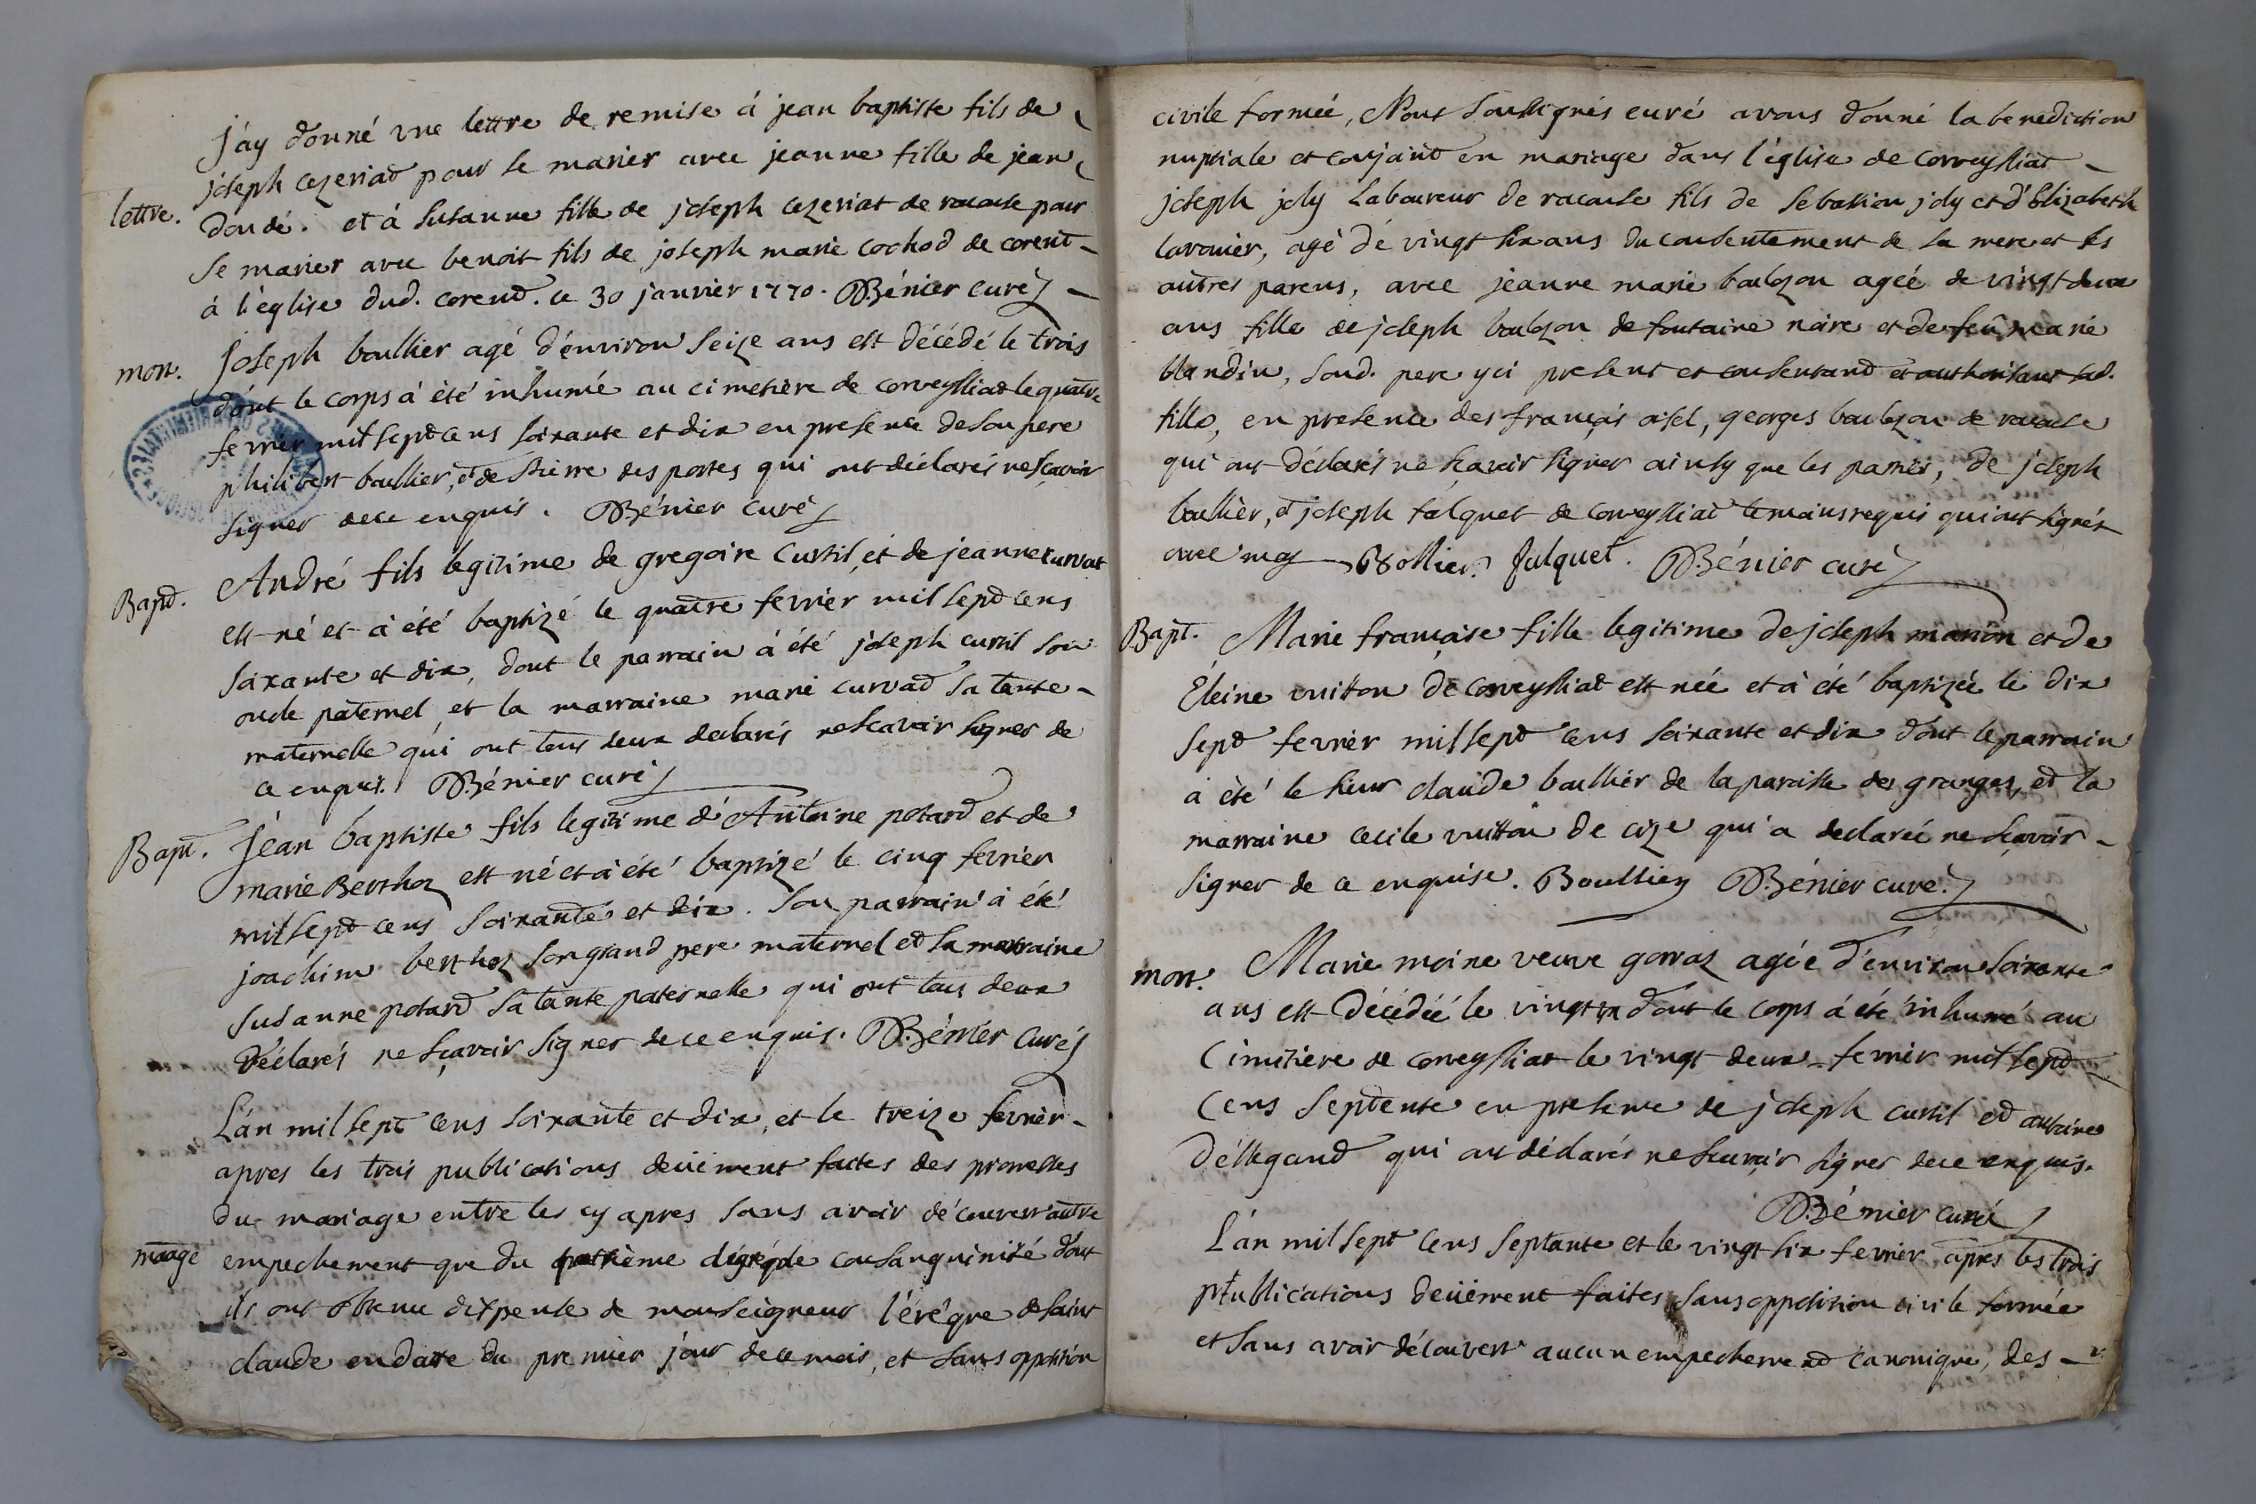 j'ay donné une lettre de remise à jean baptiste fils de
joseph cezeriat pour se marier avec jeanne fille de jean
lettre. dondé. et à susanne fille de joseph cezeriat de racouse pour
se marier avec benoit fils de joseph marie cochod de corent
à l'eglise dud. corend. ce 30 janvier 1770. Bénier curé
mort. joseph boullier agé d'environ seize ans est décédé le trois
dont le corps à été inhumé au cimetière de corveyssiat le quatre
fevrier mil sept cens soixante et dix en presence de son pere
philibert boullier, et de pierre des portes qui ont déclarés ne sçavoir
signer de ce enquis. Bénier curé
Bapt. André fils légitime de gregoire curtil, et de jeanne curvat
est né et à été baptizé le quatre fevrier mil sept cens
soixante et dix, dont le parrain à été joseph curtil son
oncle paternel et la marraine marie curvad sa tante
maternelle qui ont tous deux declarés ne scavoir signer de
ce enquis. Bénier curé
Bapt. jean baptiste fils legitime d'Antoine potard et de
marie Berthoz est né et à été baptizé le cinq fevrier
mil sept cens soixante et dix. son parrain à été
joachim berthoz son grand pere maternel et sa marraine
susanne potard sa tante paternelle qui ont tous deux
déclarés ne sçavoir signer de ce enquis. Bénier curé
L'an mil sept cens soixante et dix, et le treize fevrier
apres les trois publications deüement faites des promesses
du mariage entre les cy apres sans avoir découvert autre
mãage empechement que du quatrième dégré de consanguinité dont
ils ont obtenu dispense de monseigneur l'évéque de saint
claude en datte du premier jour de ce mois, et sans opposition
civile formée, Nous soussignés curé avons donné la benediction
nuptiale et conjoint en mariage dans l'église de corveyssiat
joseph joly laboureur de racouse fils de sebastien joly et d'Elizabeth
lavonier, agé de vingt six ans du consentement de sa mere et ses
autres parens, avec jeanne marie boulzon ageé de vingt deux
ans fille de joseph boulzon de fontaine noire et de feüe marie
blandin, soud. pere yci present et consentand et authorisant sad.
fille, en presence des françois ofel, georges boulzon de racouse
qui ont déclarés ne sçavoir signer ainsy que les parties, de joseph
boullier, et joseph falquet de corveyssiat temoins requis qui ont signés
avec moy Bollier. Fulquet. Bénier curé
Bapt. Marie française fille legitime de joseph marion et de
Eleine vuitton de corveyssiat est née et à été baptizée le dix
sept fevrier mil sept cens soixante et dix dont le parrain
à été le sieur claude boullier de la paroisse des granges, et la
marraine cecile vuitton de cize qui a declareé ne sçavoir
signer de ce enquise. Boullier Bénier curé.
mort. Marie moine veuve gorraz agée d'environ soixante
ans est décédée le vingt un dont le corps à été inhumé au
cimitière de corveyssiat le vingt deux fevrier mil sept
cens septente en presence de joseph curtil et antoine
déllegand qui ont déclarés ne scavoir signer de ce enquis.
Bénier curé
L'an mil sept cens septante et le vingt six fevrier apres les trois
publications deüement faites sans opposition civile formée
et sans avoir découvert aucun empechement canonique, des